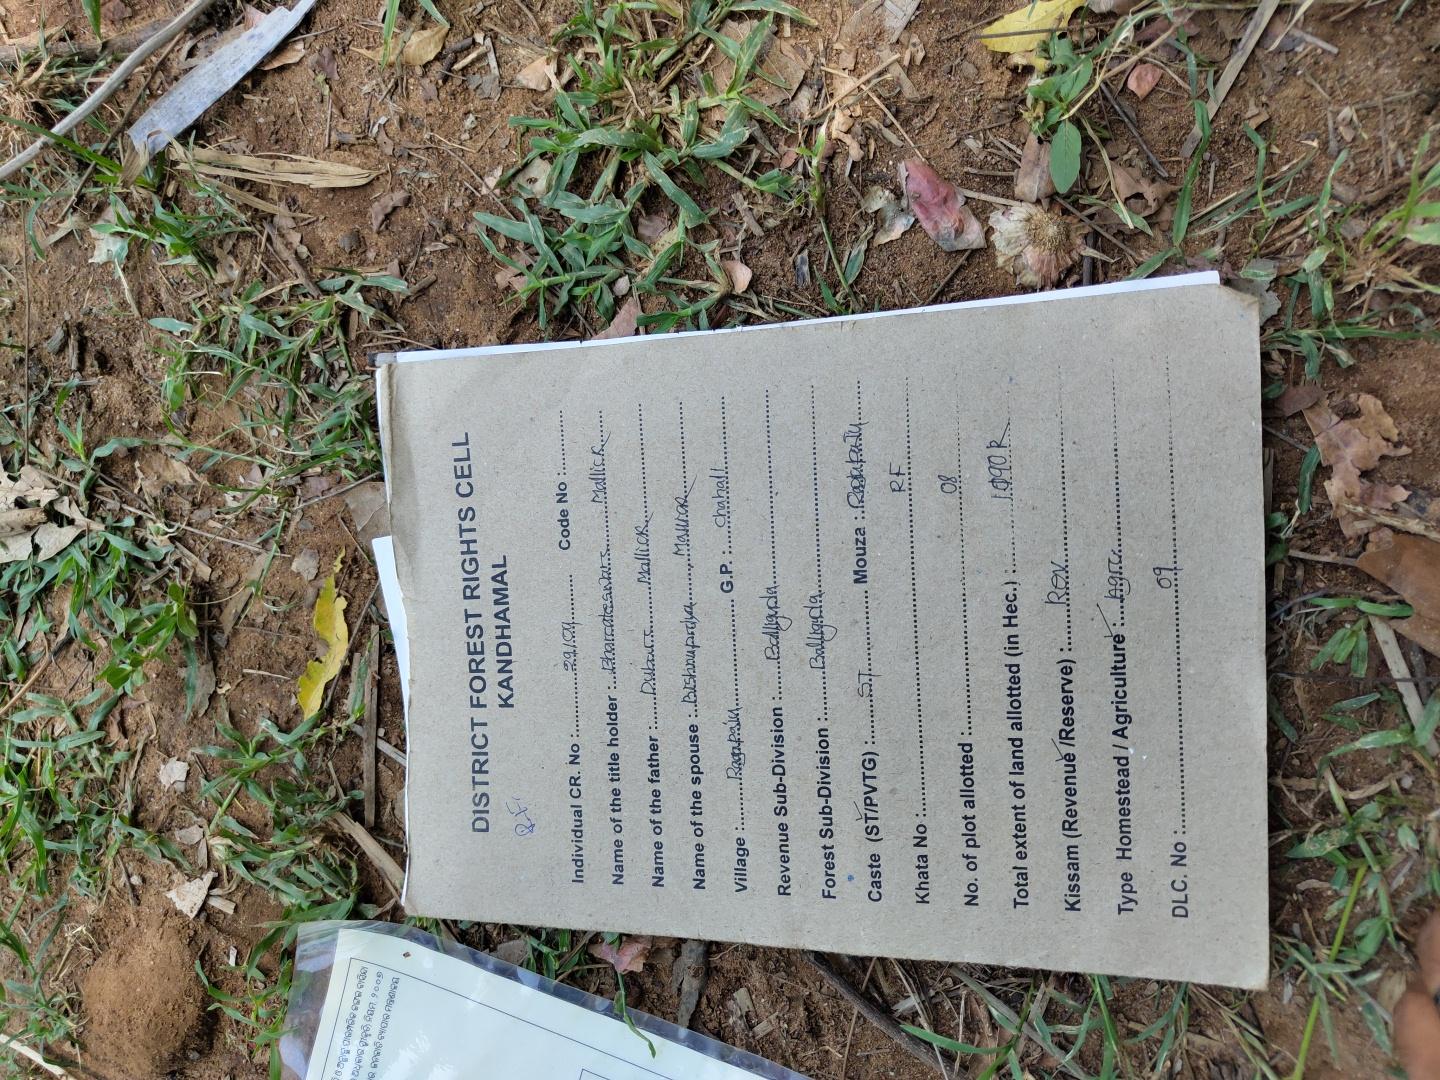 DISTRICT FOREST RIGHTS CELL
KANDHAMAL
R.F.
Individual CR. No :............ Code No :............
Name of the title holder : Bharateswara Mallick
Name of the father : Mallick
Name of the spouse : Bishnupriya Mallick
Village : Ragapaju G.P : Chahali
Revenue Sub-Division : Balliguda
Forest Sub-Division : Balliguda
Caste (ST/PVTG) : ST Mouza : Ragapaju
Khata No : RF
No. of plot allotted : 08
Total extent of land allotted (in Hec.) :
Kissam (Revenue/Reserve) : Rev.
Type Homestead / Agriculture : Agric.
DLC. No : 09